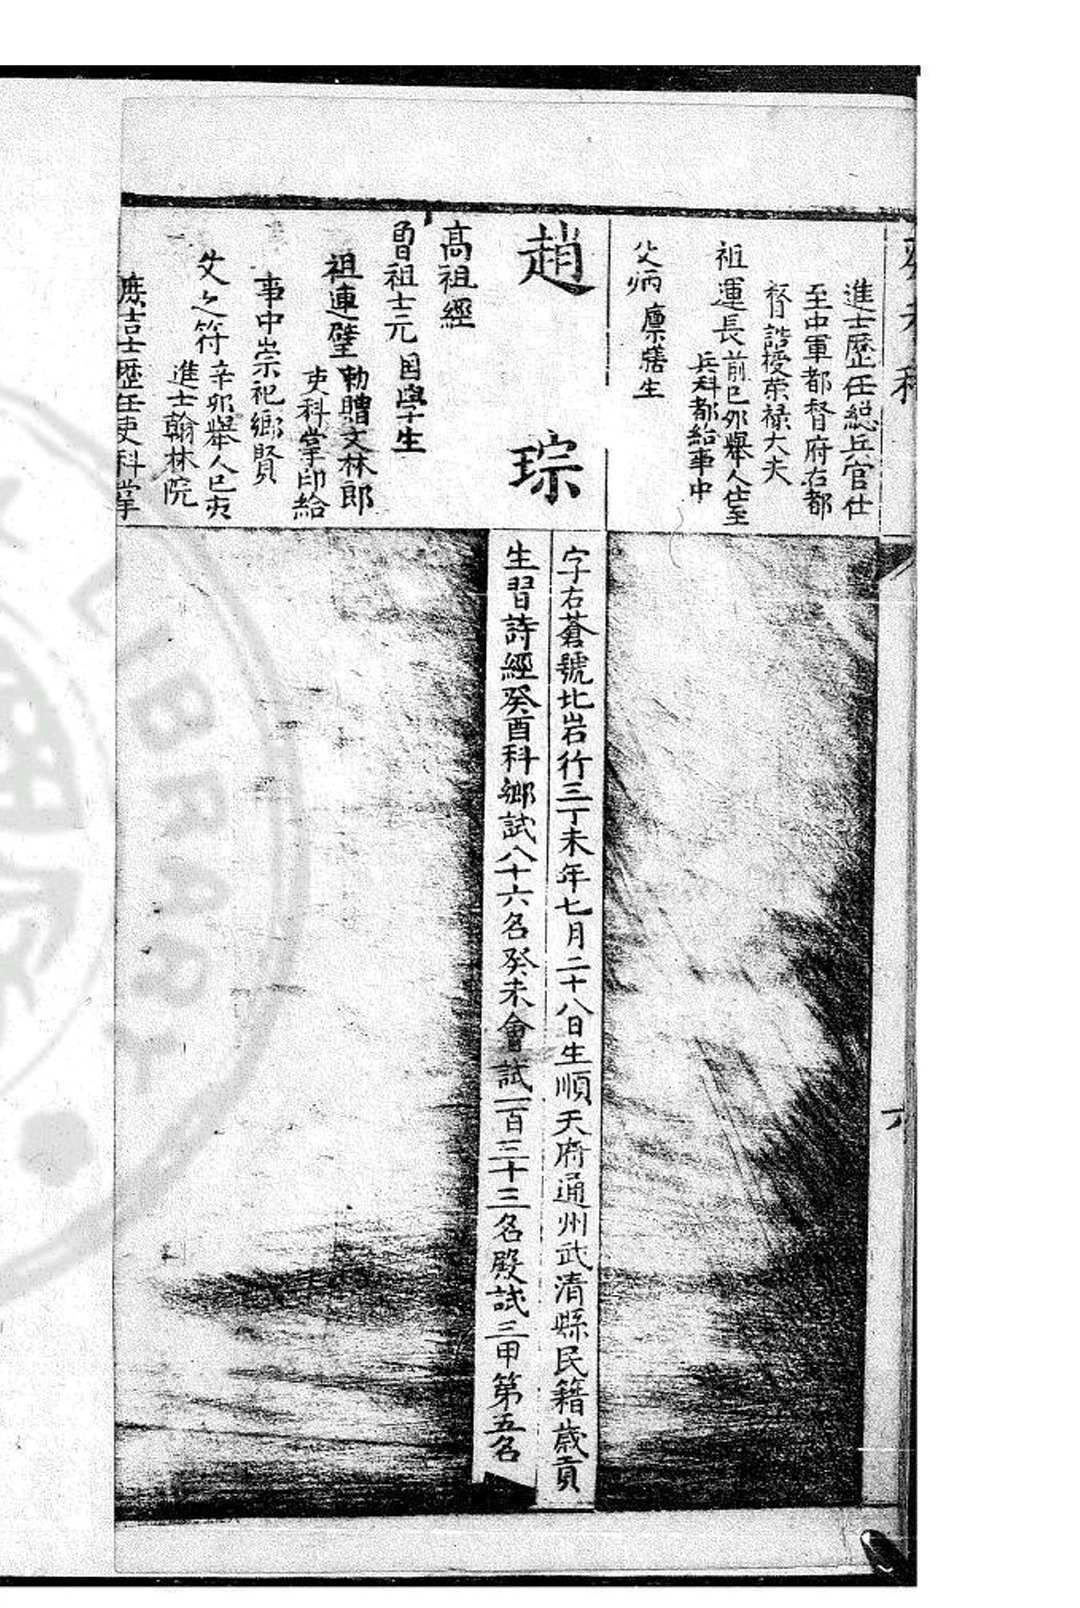 進士歷任總兵官仕
至中軍都督府右都
督誥授荣祿大夫
祖運長前己卯舉人仕至
兵科都給事中
父炳廪膳生
趙琮
字右蒼號北岩行三丁未年七月二十八日生順天府通州武清縣民籍歲貢
生習詩經癸酉科鄉試八十六名癸未會試一百三十三名殿試三甲第五名
高祖經
曾祖士元國學生
祖連璧勅贈文林郎
吏科掌印給
事中崇祀鄉賢
父之符辛卯舉人己亥
進士翰林院
庶吉士歷任吏科掌
六
LIBRARY